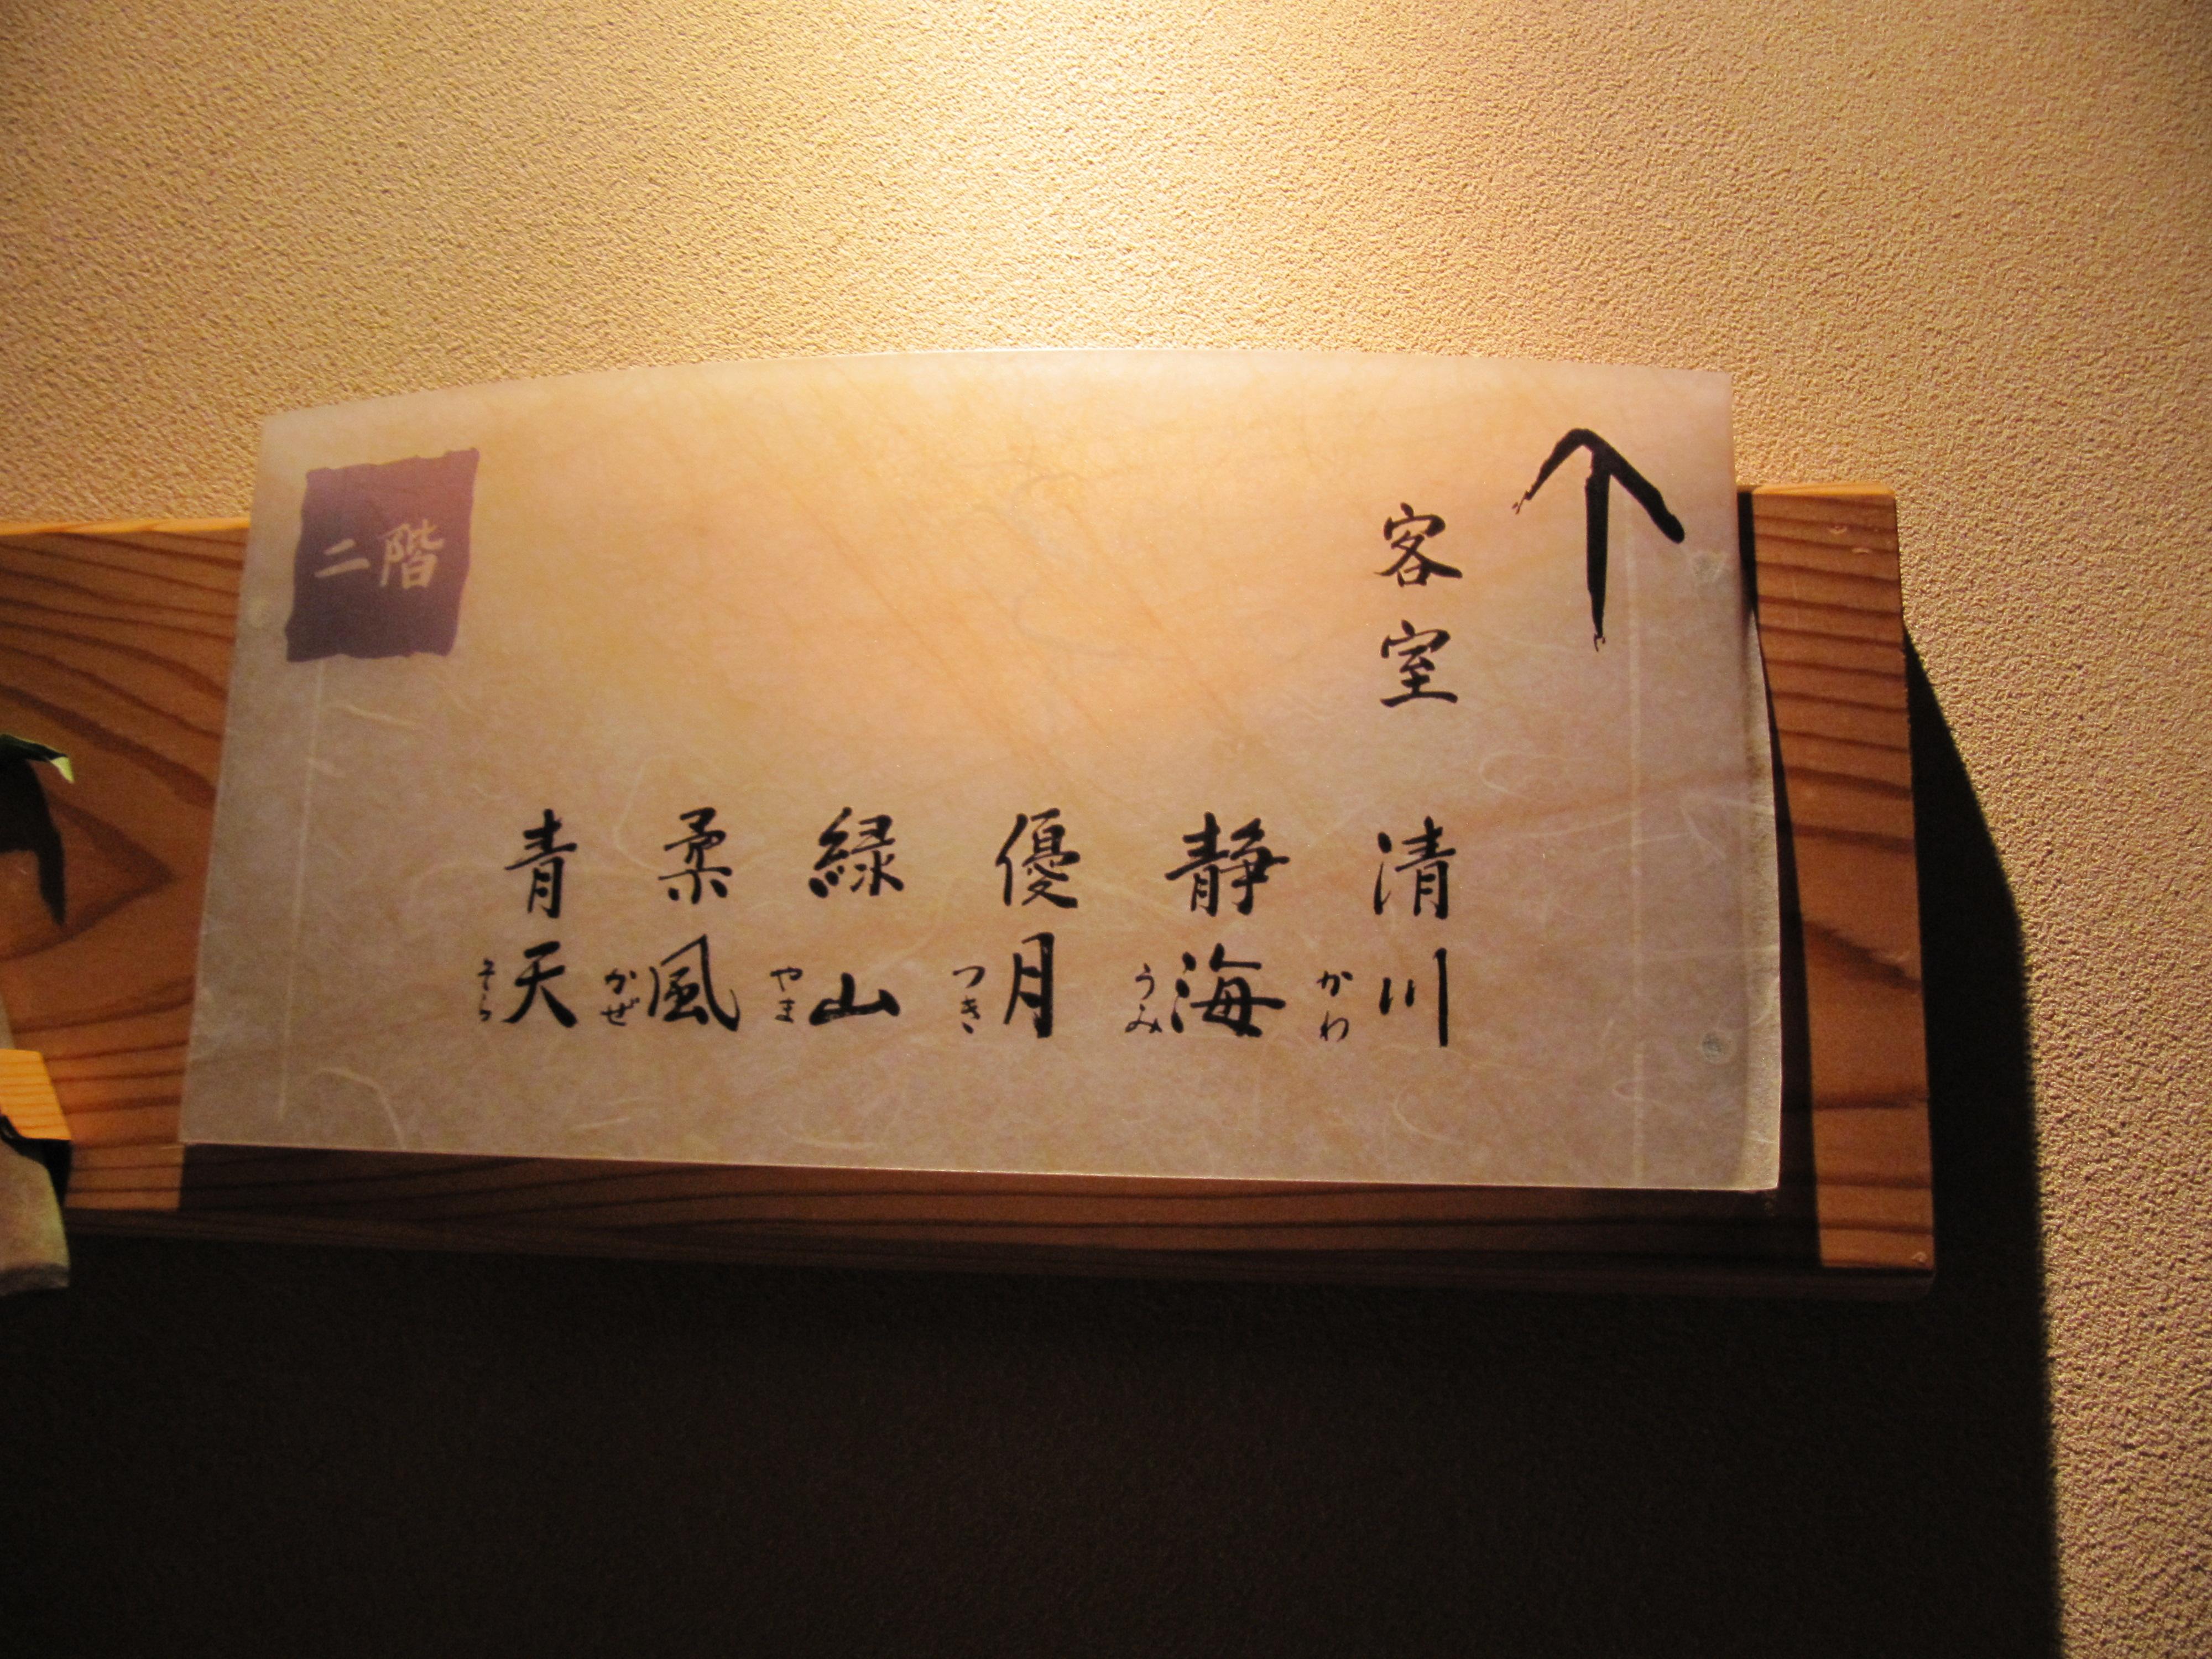 二階
客室
清川
かわ
静海
うみ
優月
つき
緑山
やま
柔風
かぜ
青天
そら